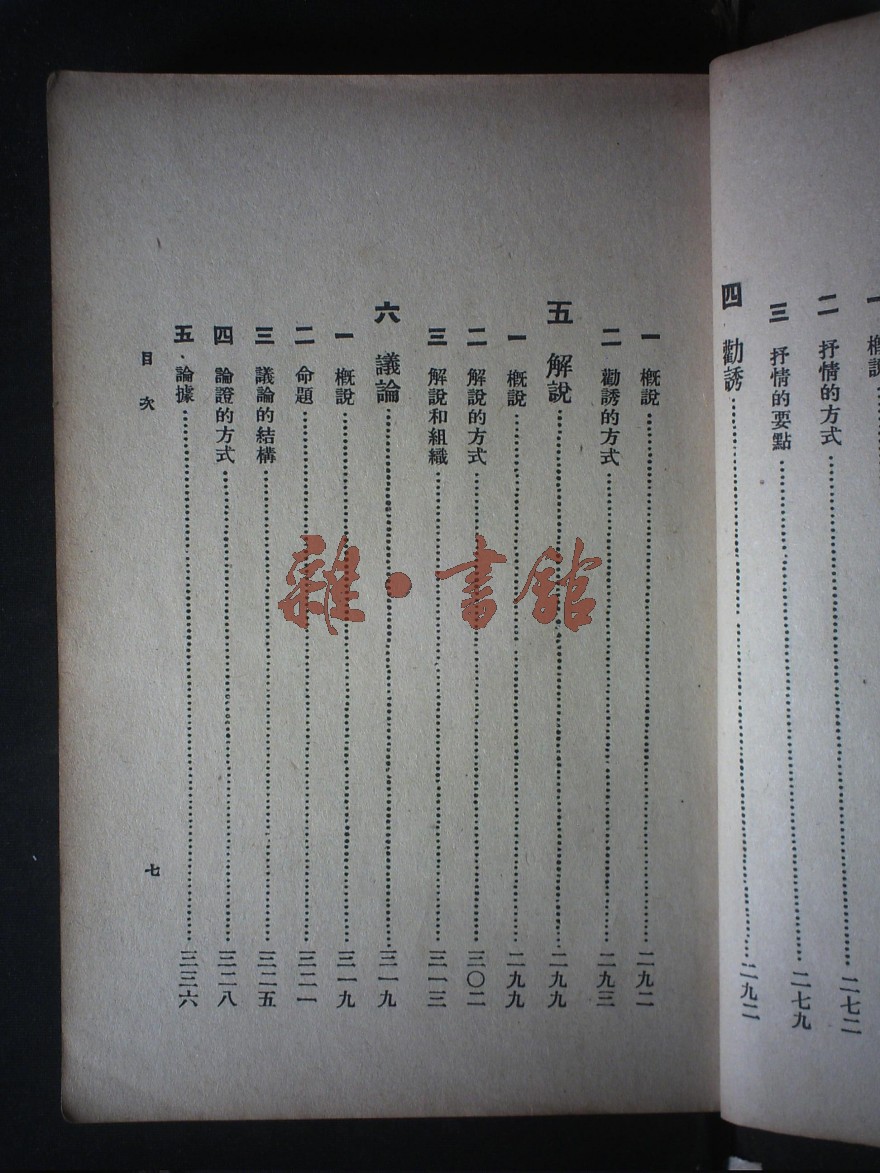 一 概說……二七二
二 抒情的方式……二七二
三 抒情的要點……二七九
四 勸誘……二九二
一 概說……二九二
二 勸誘的方式……二九三
五 解說……二九九
一 概說……二九九
二 解說的方式……三〇二
三 解說和組織……三一三
六 議論……三一九
一 概說……三一九
二 命題……三二一
三 議論的結構……三二五
四 論證的方式……三二八
五、論據……三三六
目次
七
雜·書館